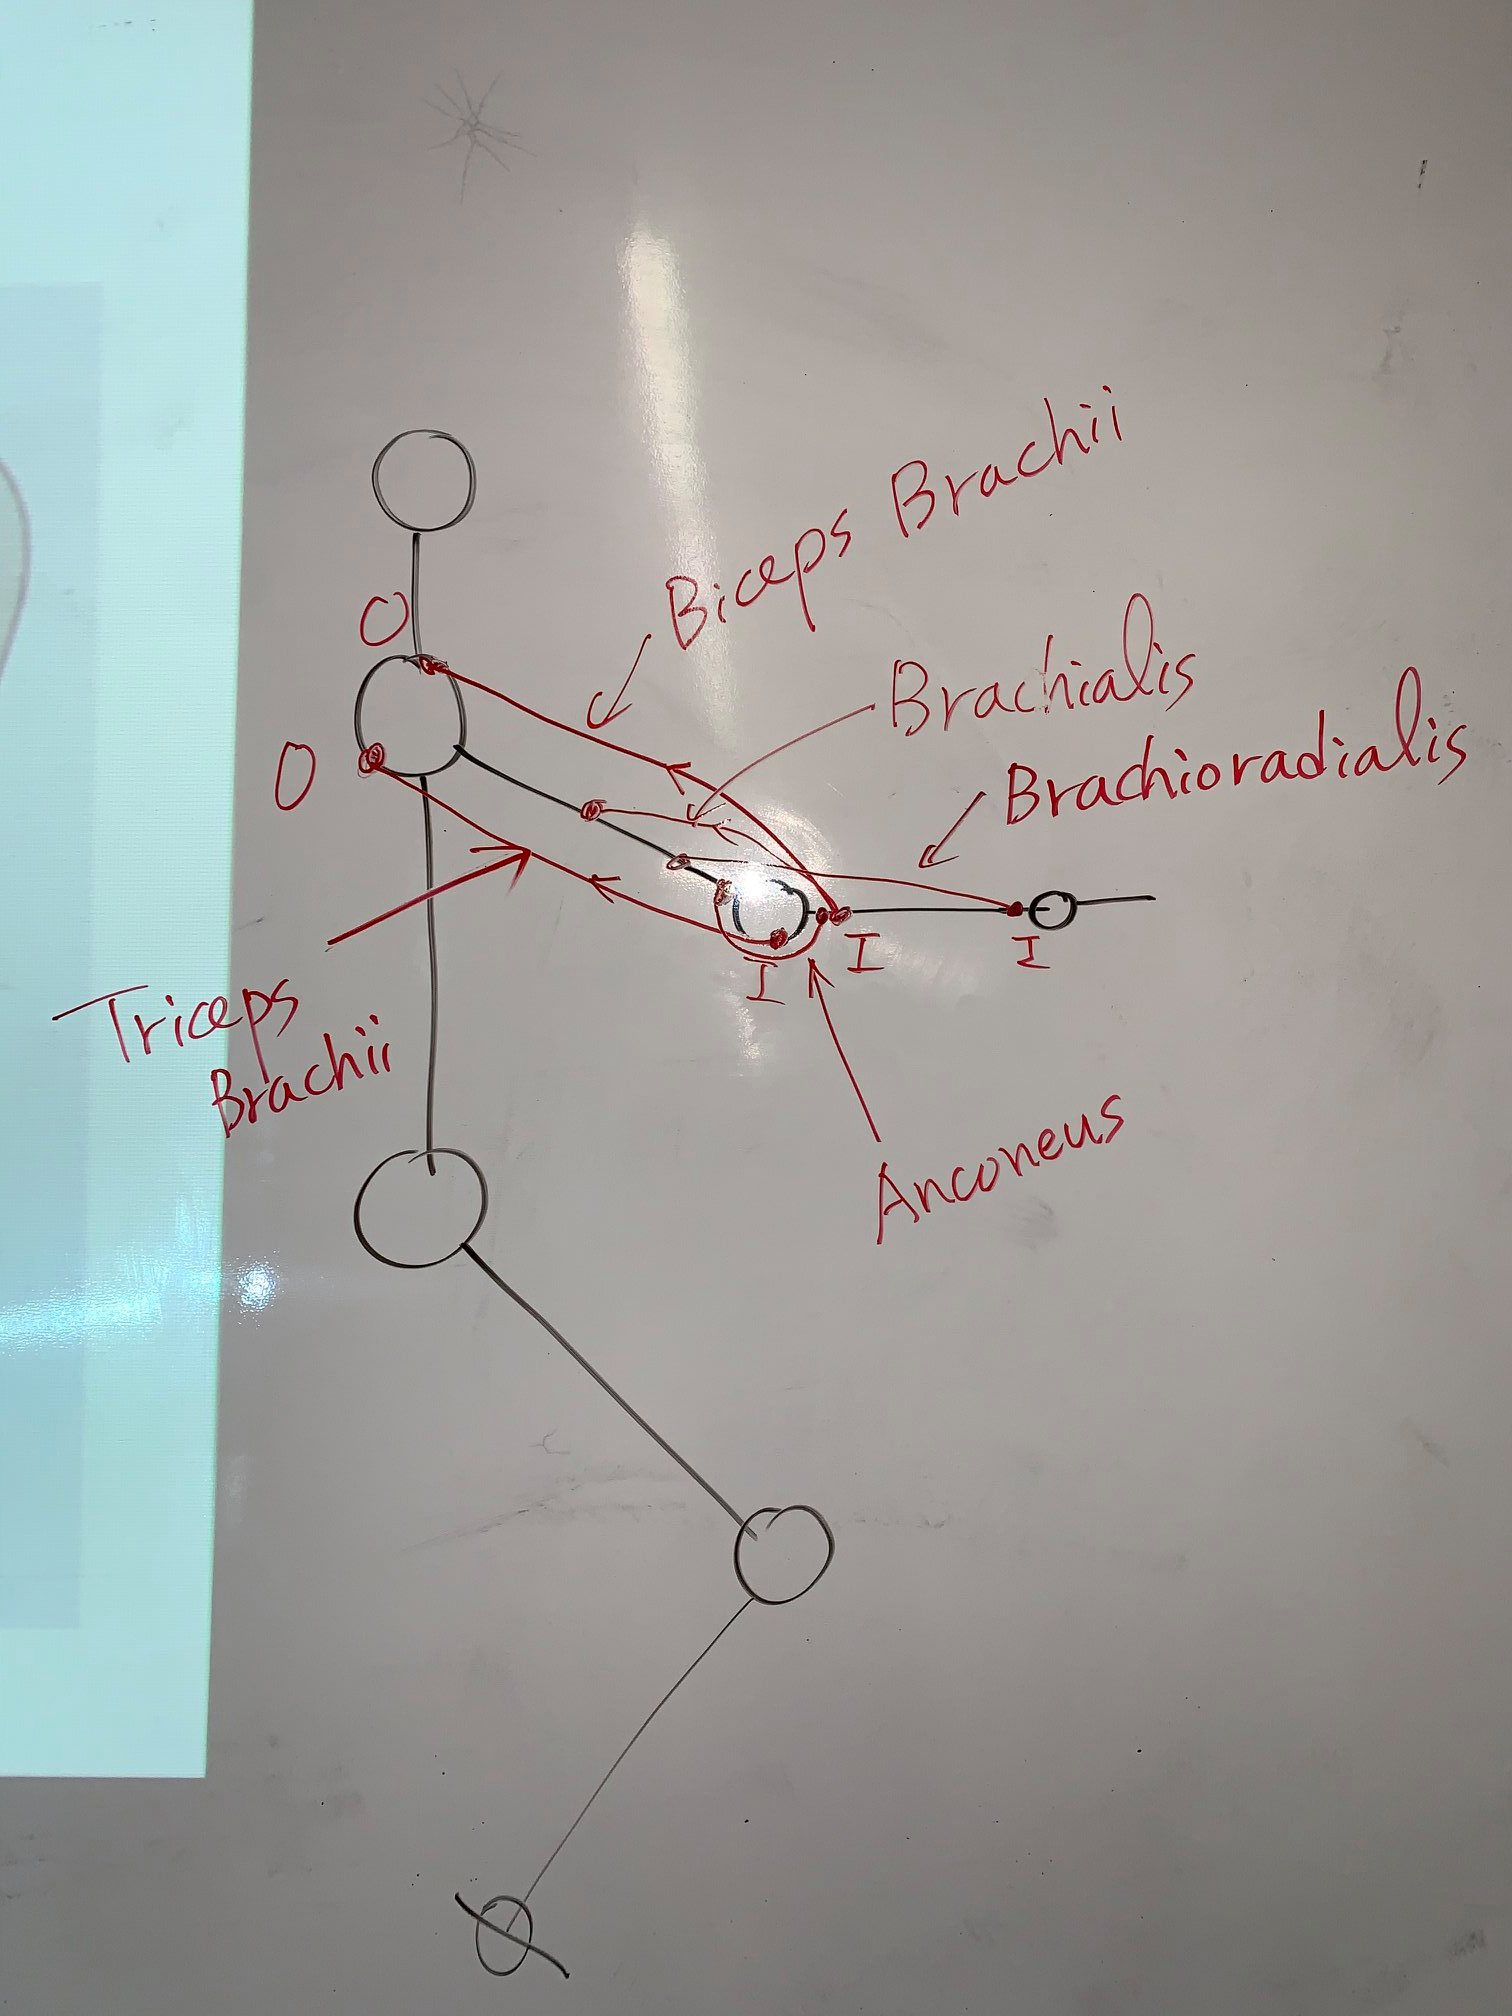 Biceps Brachii
O
Brachialis
O
Brachioradialis
I
I
I
Triceps
Brachii
Anconeus